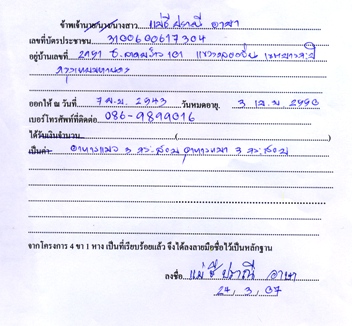 ข้าพเจ้านาย/นาง/นางสาว แม่ชีปราณี อาษา
เลขที่บัตรประชาชน 3100600617304
อยู่บ้านเลขที่ 2491 ซ.ลาดพร้าว 101
กรุงเทพมหานคร
ออกให้ ณ วันที่ วันหมดอายุ
เบอร์โทรศัพท์ที่ติดต่อ 086-9899016
ได้รับเงินจำนวน ( )
เป็นค่า อาหารแมว 3 กระสอบ อาหารหมา 3 กระสอบ
จากโครงการ 4 ขา 1 หาง เป็นที่เรียบร้อยแล้ว จึงได้ลงลายมือชื่อไว้เป็นหลักฐาน
ลงชื่อ แม่ชีปราณี อาษา
24, 3, 67